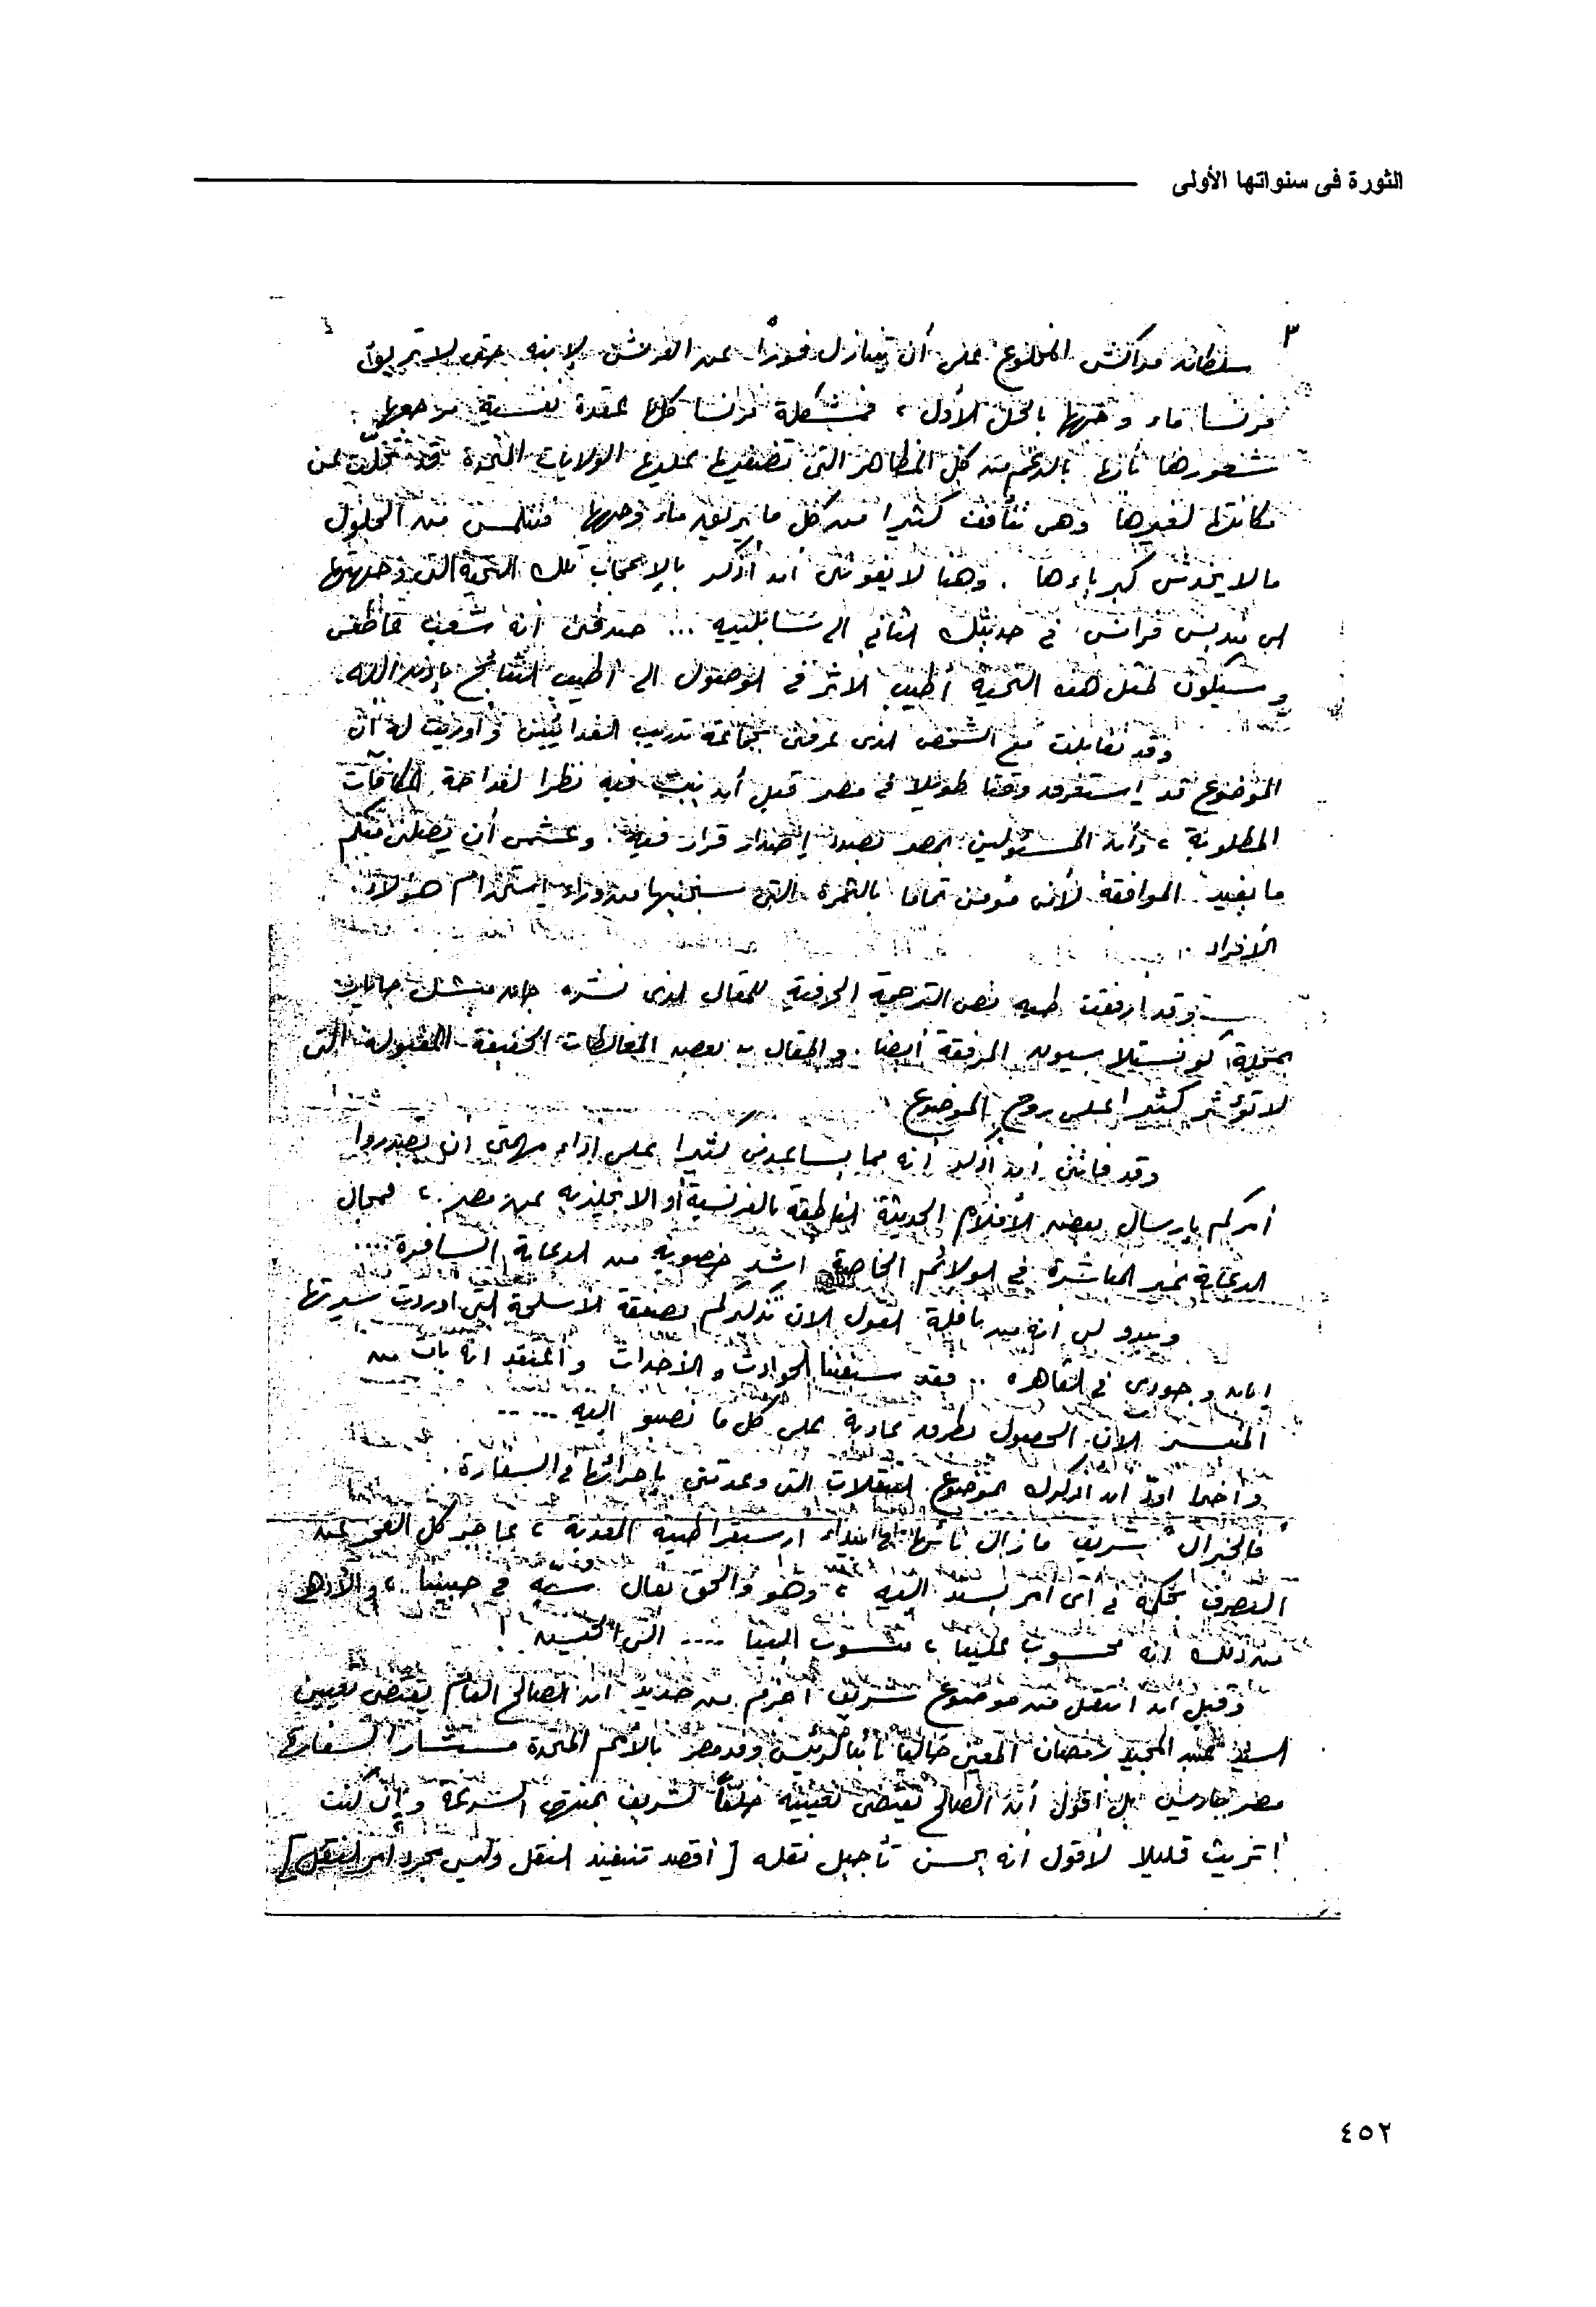 الثورة فى سنواتها الأولى
٣
سلطان مراكش المخلوع على أن يتنازل فورا عن العرش لإبنه حتى لا تريق
فرنسا ماء وجهها بالحل الأول ، فمشكلة فرنسا كلها عقدة نفسية مرجعها
شعورها بأنها بالرغم من كل المظاهر التى تضفيها عليها الولايات المتحدة قد تخلت عن
مكانتها لغيرها وهى تتأفف كثيرا من كل ما يريق ماء وجهها فتلتمس من الحلول
مالا يخدش كبرياءها . وهنا لا يفوتنى أن أذكر بالإعجاب تلك التحية التى وجهتها
الى منديس فرانس فى حديثك الثانى الى ... صدقنى انه شعب عاطفى
وسيكون لمثل هذه التحية أطيب الاثر فى الوصول الى أطيب النتائج بإذن الله .
وقد تقابلت مع الشخص الذى عرفنى بجماعة تدريب الفدائيين وأوضحت له أن
الموضوع قد إستغرق وقتا طويلا فى مصر قبل أن يبت فيه نظرا لفداحة المكافآت
المطلوبة ، وأن المسئولين بمصر بصدد إصدار قرار فيه . وعشمى أن يصلنى منكم
ما يفيد الموافقة لأنى مؤمن تماما بالثمرة التى سنجنيها من وراء إستخدام هؤلاء
الأفراد .
وقد ارفقت طيه نص الترجمة الحرفية للمقال الذى نشره جان
بمجلة كونستلاسيون المرفقة أيضا . والمقال به بعض المغالطات الخفيفة المقبولة التى
لا تؤثر كثيرا على روح الموضوع
وقد فاتنى أن أذكر أنه مما يساعدنى كثيرا على اداء مهمتى ان تصدروا
أمركم بإرسال بعض الأفلام الحديثة الناطقة بالفرنسية أو الانجليزية عن مصر ، فمجال
الدعاية غير المباشرة فى الولائم الخاصة اشد خصوبة من الدعاية السافرة ....
ويبدو لى أنه من نافلة القول الان تذكيركم بصفقة الأسلحة التى اوردت سيرتها
إبان وجودى فى القاهرة .. فقد سبقتنا الحوادث والأحداث وأعتقد انه بات من
المتيسر الان الحصول بطرق عادية على كل ما نصبو اليه .....
وأخيرا اودّ ان اذكرك بموضوع التنقلات التى وعدتنى بإجرائها فى السفارة .
فالجنرال شريف ما زال تائها فى بيداء ارستقراطيته ، عاجز كل العجز عن
التصرف بحكمة فى أى أمر يسند اليه ، وهو والحق يقال سبة فى جبيننا ، والأدهى
من ذلك انه محسوب علينا ، منسوب الينا ....
وقبل ان انتقل من موضوع شريف اجزم من جديد ان الصالح العام يقتضى تعيين
السيد عبد المجيد رمضان المعين حاليا نائبا لرئيس وفد مصر بالأمم المتحدة مستشارا لسفارة
مصر بباريس بل أقول أن الصالح يقتضى تعيينه خلفا لشريف بمنتهى السرعة وإن كنت
أتريث قليلا لأقول أنه يحسن تأجيل نقله [ أقصد تنفيذ النقل وليس مجرد أمر النقل ]
٤٥٢